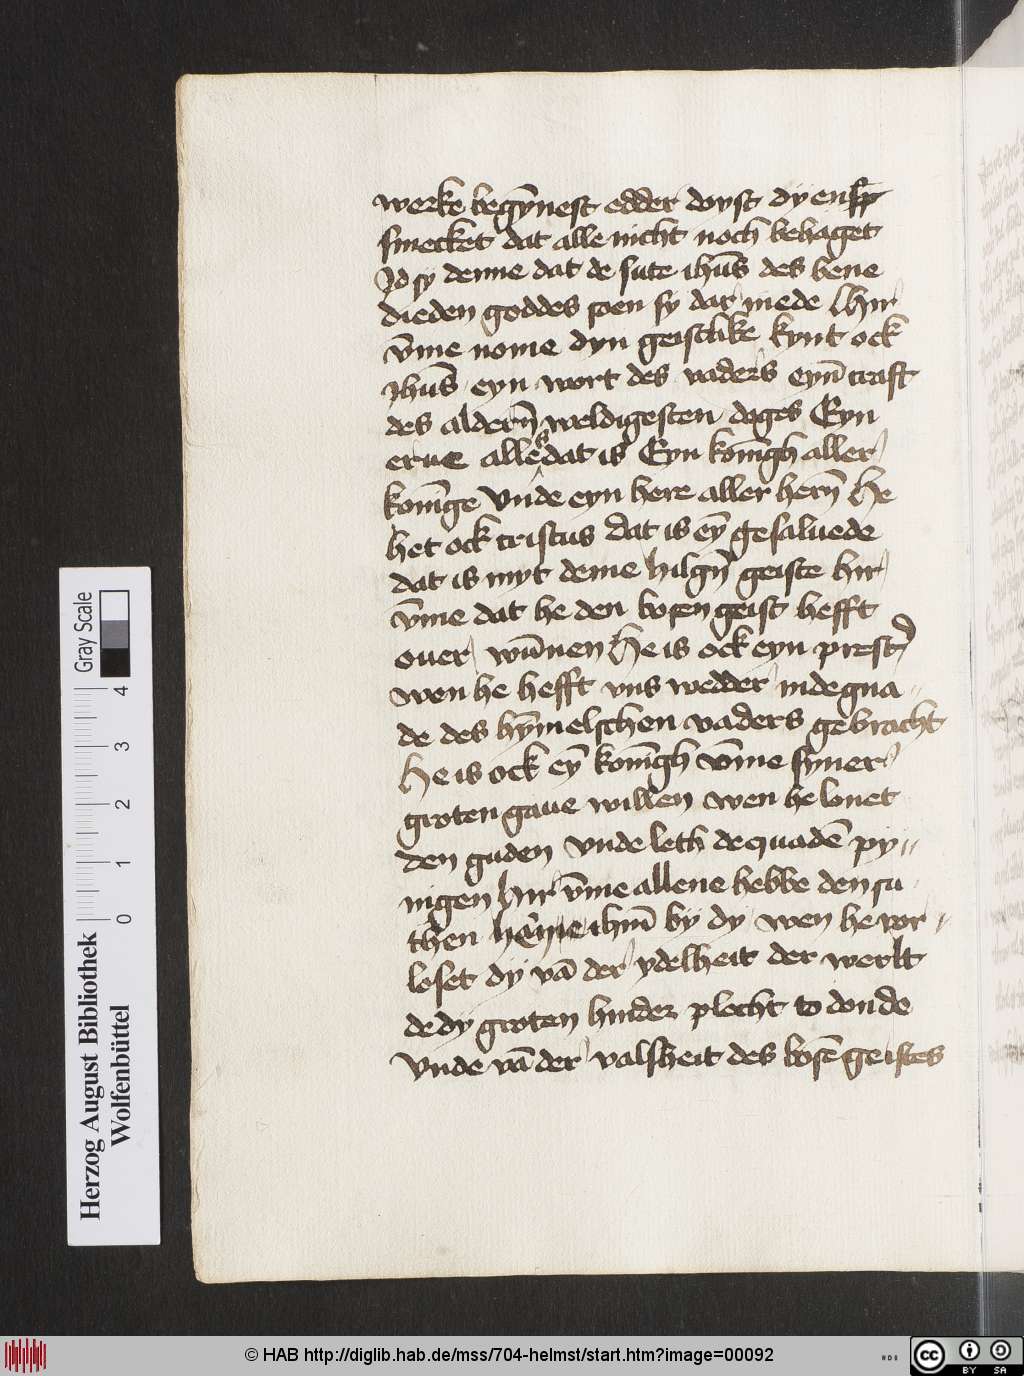 werke begȳnest edder doyst dy en
smecket dat alle nicht noch behaget
Id sy denne dat de sute ihūs des bene
dieden goddes soen sy dar mede Hir
v̄me nome dyn geistlike kynt ock
ihūs eyn wort des vaders eyn̄ craft
des aldern̄ weldigesten doges Eyn
erue alles dat is Eyn konīgh aller
konīge Vnde eyn here aller hern̄ He
het ock cristus dat is eȳ gesaluede
dat is myt deme hilgn̄ geiste hir
v̄me dat he den bosen geist hefft
ouer wūnen He is ock eyn prest
wen he hefft vns wedder in de gna
de des hȳmelschen vaders gebracht
He is ock eȳ konīgh v̄me syner
groten gaue willen wen he lonet
den guden Vnde leth de quadē py
nigen Hir v̄me allene hebbe den su
then name ihm̄ by dy wen he vor
leset dy vā der ydelheit der werlt
de dy groten hinder plecht to donde
Vnde vā der valsheit des bosē geistes
Herzog August Bibliothek
Wolfenbüttel
0 1 2 3 4
Gray Scale
© HAB http://diglib.hab.de/mss/704-helmst/start.htm?image=00092
HAB
cc BY SA